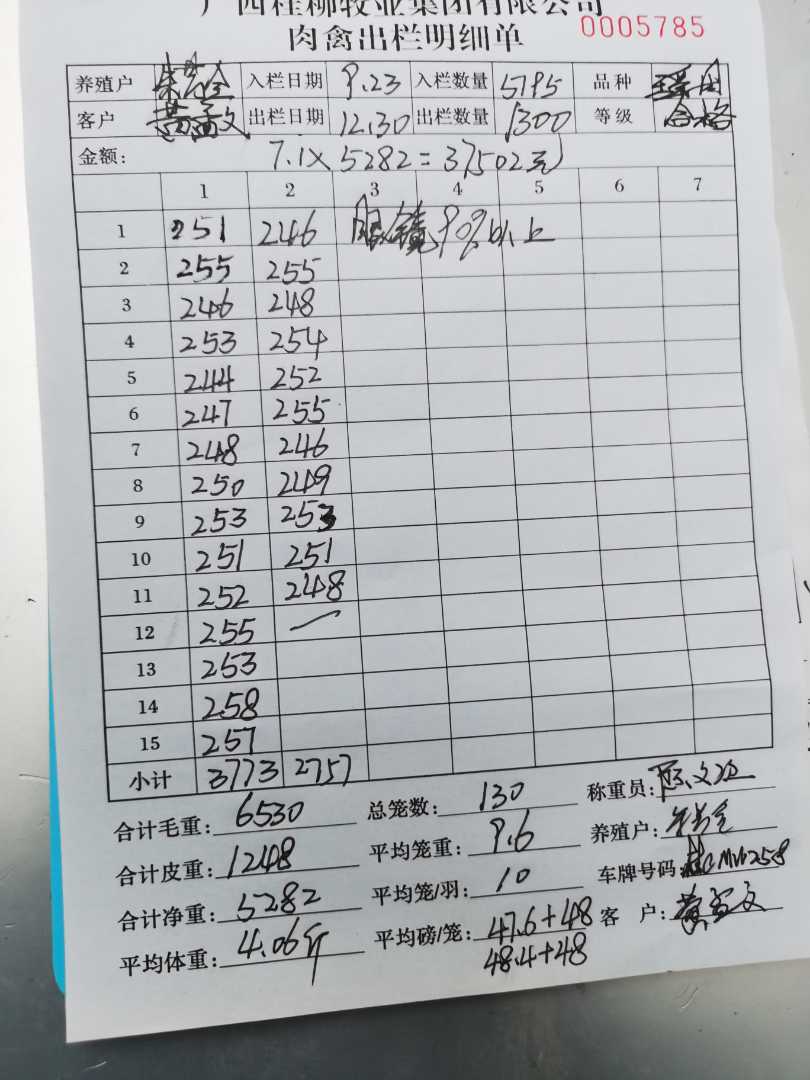 广西桂柳牧业集团有限公司
肉禽出栏明细单 0005785
养殖户 入栏日期 9.23 入栏数量 5795 品种 瑶鸡
客户 黄富文 出栏日期 12.30 出栏数量 1300 等级 合格
金额: 7.1×5282=37502元
1 2 3 4 5 6 7
1 251 246 眼镜90%以上
2 255 255
3 246 248
4 253 254
5 244 252
6 247 255
7 248 246
8 250 249
9 253 253
10 251 251
11 252 248
12 255 —
13 253
14 258
15 257
小计 3773 2757
合计毛重: 6530 总笼数: 130 称重员:
合计皮重: 1248 平均笼重: 9.6 养殖户:
合计净重: 5282 平均笼/羽: 10 车牌号码:
平均体重: 4.06斤 平均磅/笼: 47.6+48 客 户:
48.4+48